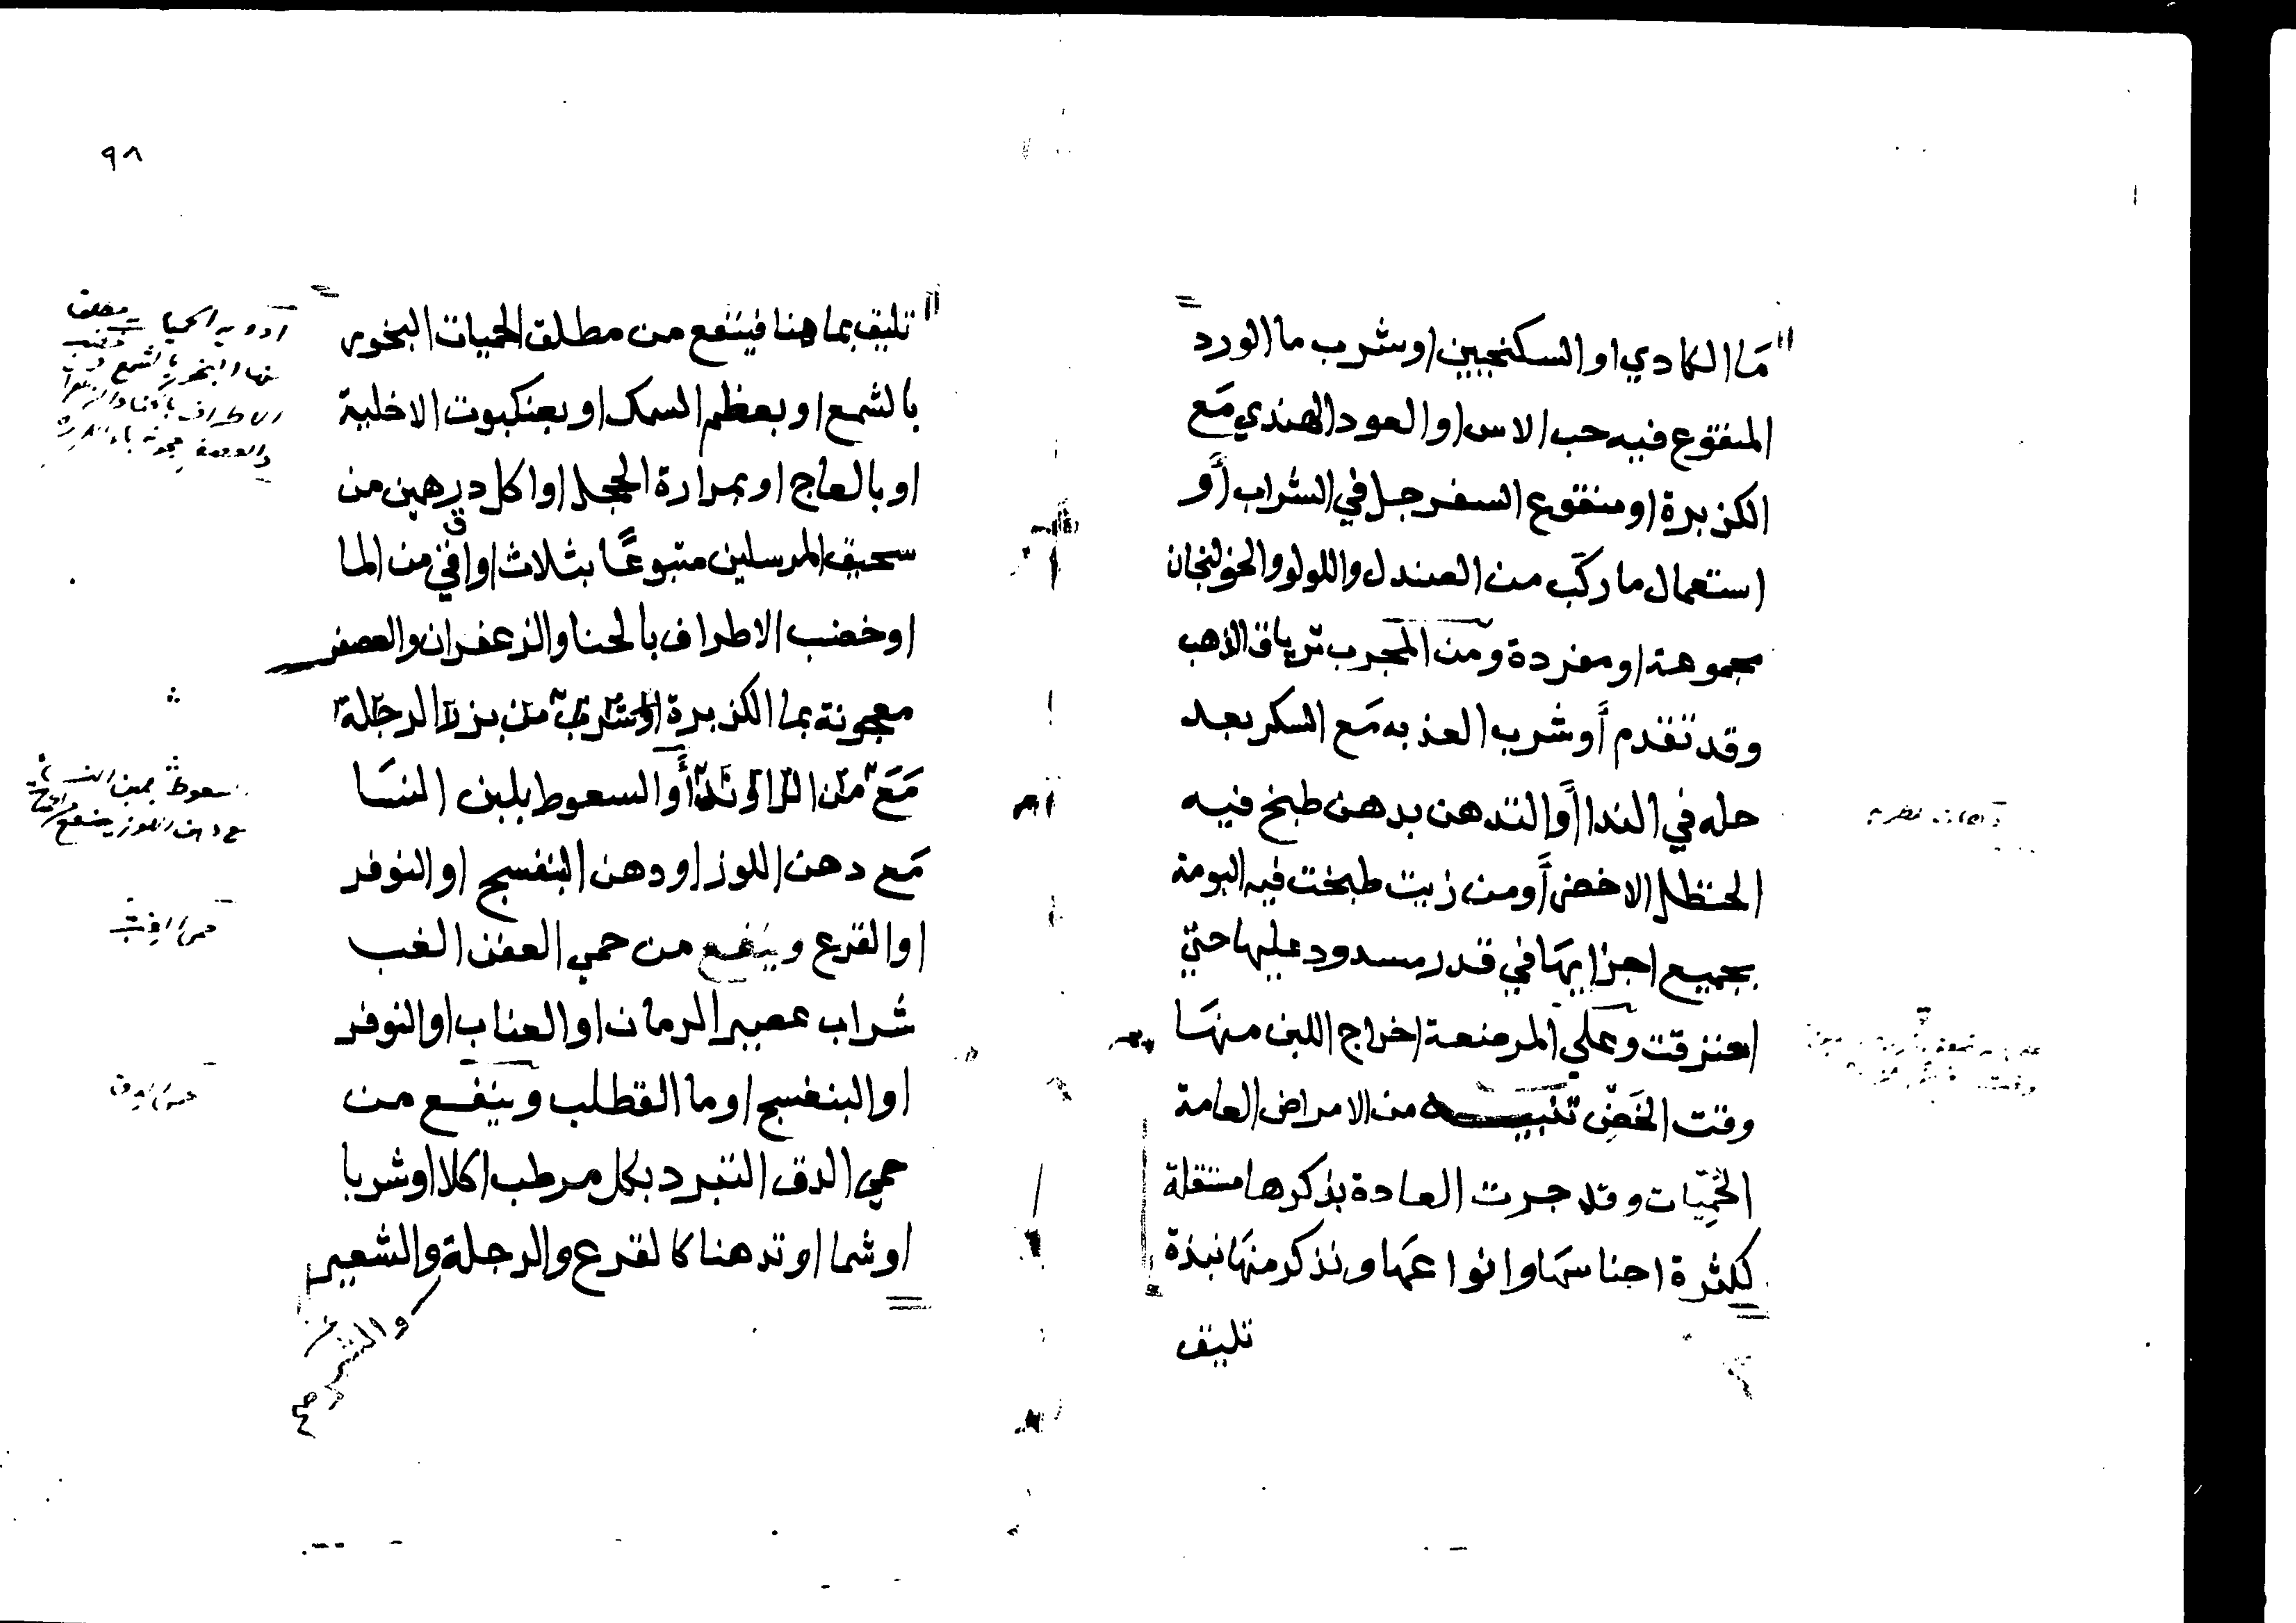 ما الكادي او السكنجبين او شرب ما الورد
المنقوع فيه حب الاس او العود الهندي مَع
الكزبرة او منقوع السفرجل في الشراب أو
استعمال ما ركب من الصندل واللولو والخولنجان
مجموعة او مفردة ومن المجرب ترياق الذهب
وقد تقدم أو شرب العذبه مَع السكر بعد
حله في الندا أو التدهن بدهن طبخ فيه
الحنظل الاخضر أو من زيت طبخت فيه البومة
بجميع اجزايها في قدر مسدود عليها حتي
وعلي المرضعة اخراج اللبن منهَا
وقت الخَضّ تنبيه من الامراض العامة
الحُمِّيات وقد جرت العادة بذكرها مستقلة
لكثرة اجناسهَا وانواعهَا ونذكر منهَا نبذة
تليق
٩٨
تليق بما هنا فينفع من مطلق الحميات البخور
بالشمع او بعظم السمك او بعنكبوت الاخلية
او بالعاج او بمرارة الحجل او اكل درهمين من
سحيق المرسلين متبوعًا بثلاث اواقي من الما
او خضب الاطراف بالحنا والزعفران والعصفر
معجونة بما الكزبرة او شرب من بزر الرجلة
مَعَ من الراوند أو السعوط بلبن النسَا
مَع دهن اللوز او دهن البنفسج او النوفر
او القرع وينفع من حمي العفن الغب
شراب عصير الرمان او العناب او النوفر
او البنفسج او ما القطلب وينفع من
حمي الدق التبرد بكل مرطب اكلا او شربا
او شما او تدهنا كالقرع والرجلة والشعير
ادوية الحميات مطلق
حمى الغب
حمى الدق